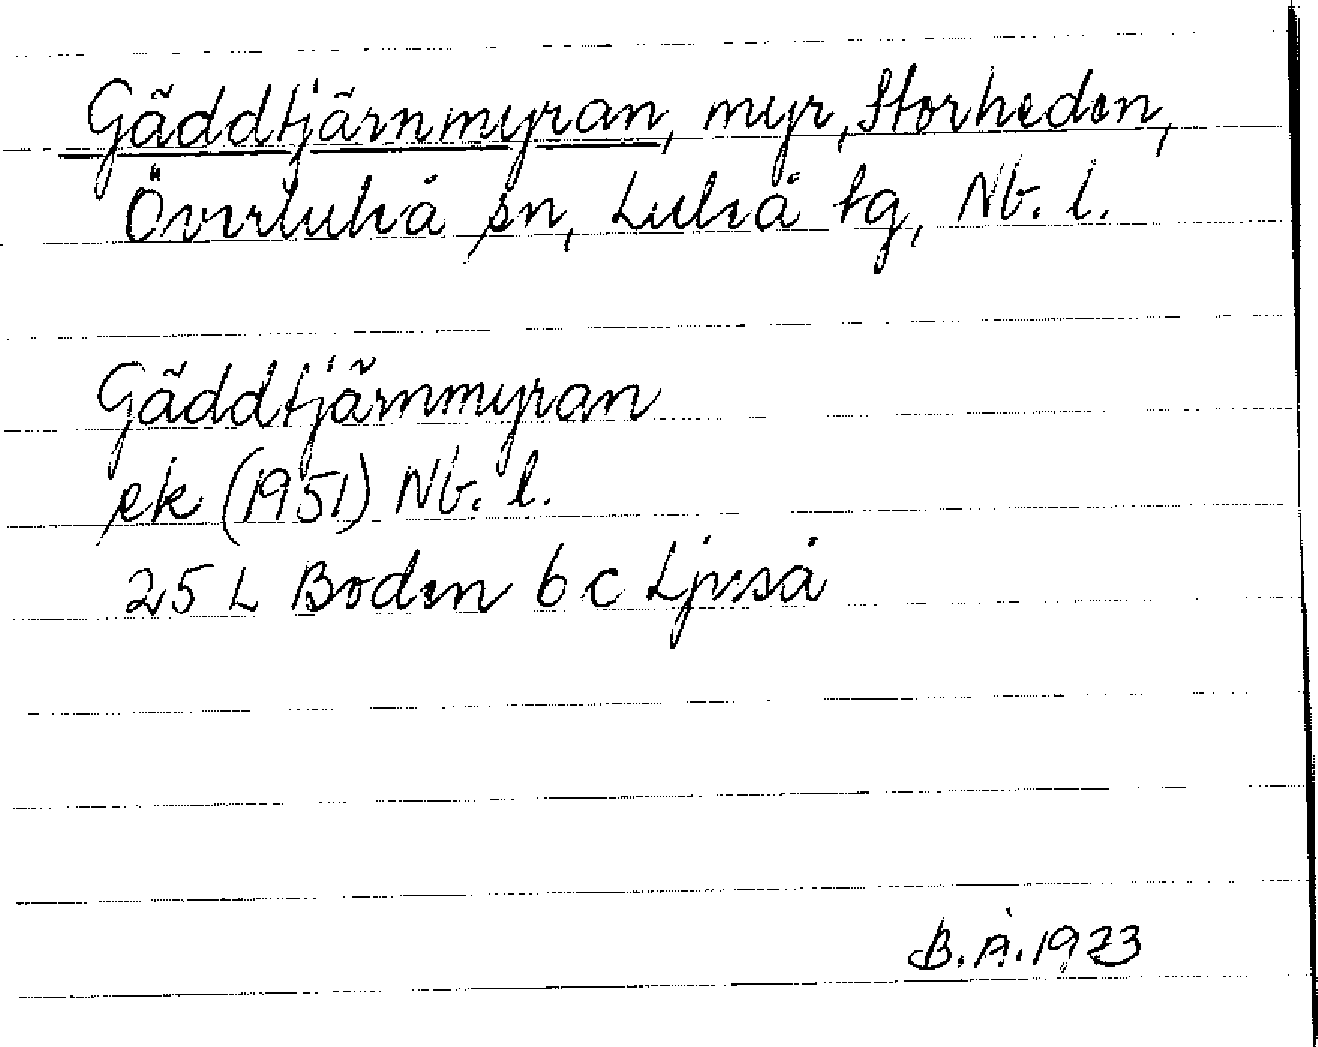 Gäddtjärnmyran, myr, Storheden,
Överluleå sn, Luleå tg, Nb. l.
Gäddtjärnmyran
ek (1951) Nb. l.
25 L Boden 6 c Ljuså
B. Å. 1973